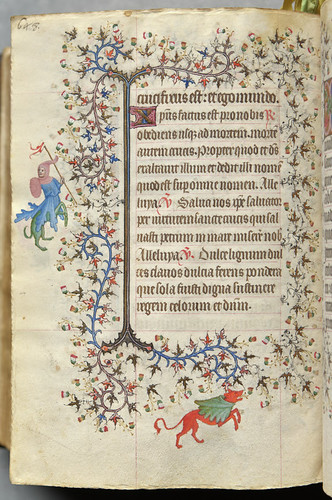 crucifixus est: et ego mundo.
Xp̄us factus est pro nobis R
obediens usq; ad mortem. morte
autem crucis. Propter quod et ds̄
exaltauit illum et dedit illi nomen
quod est sup omne nomen. Alle
luya. V Salua nos xp̄e saluator
per uirtutem sancte crucis qui sal
uasti petrum in mari miserere nob̄.
Alleluya. V. Dulce lignum dul
ces clauos dulcia ferens pondera
que sola fuisti digna sustinere
regem celorum et dnm̄.